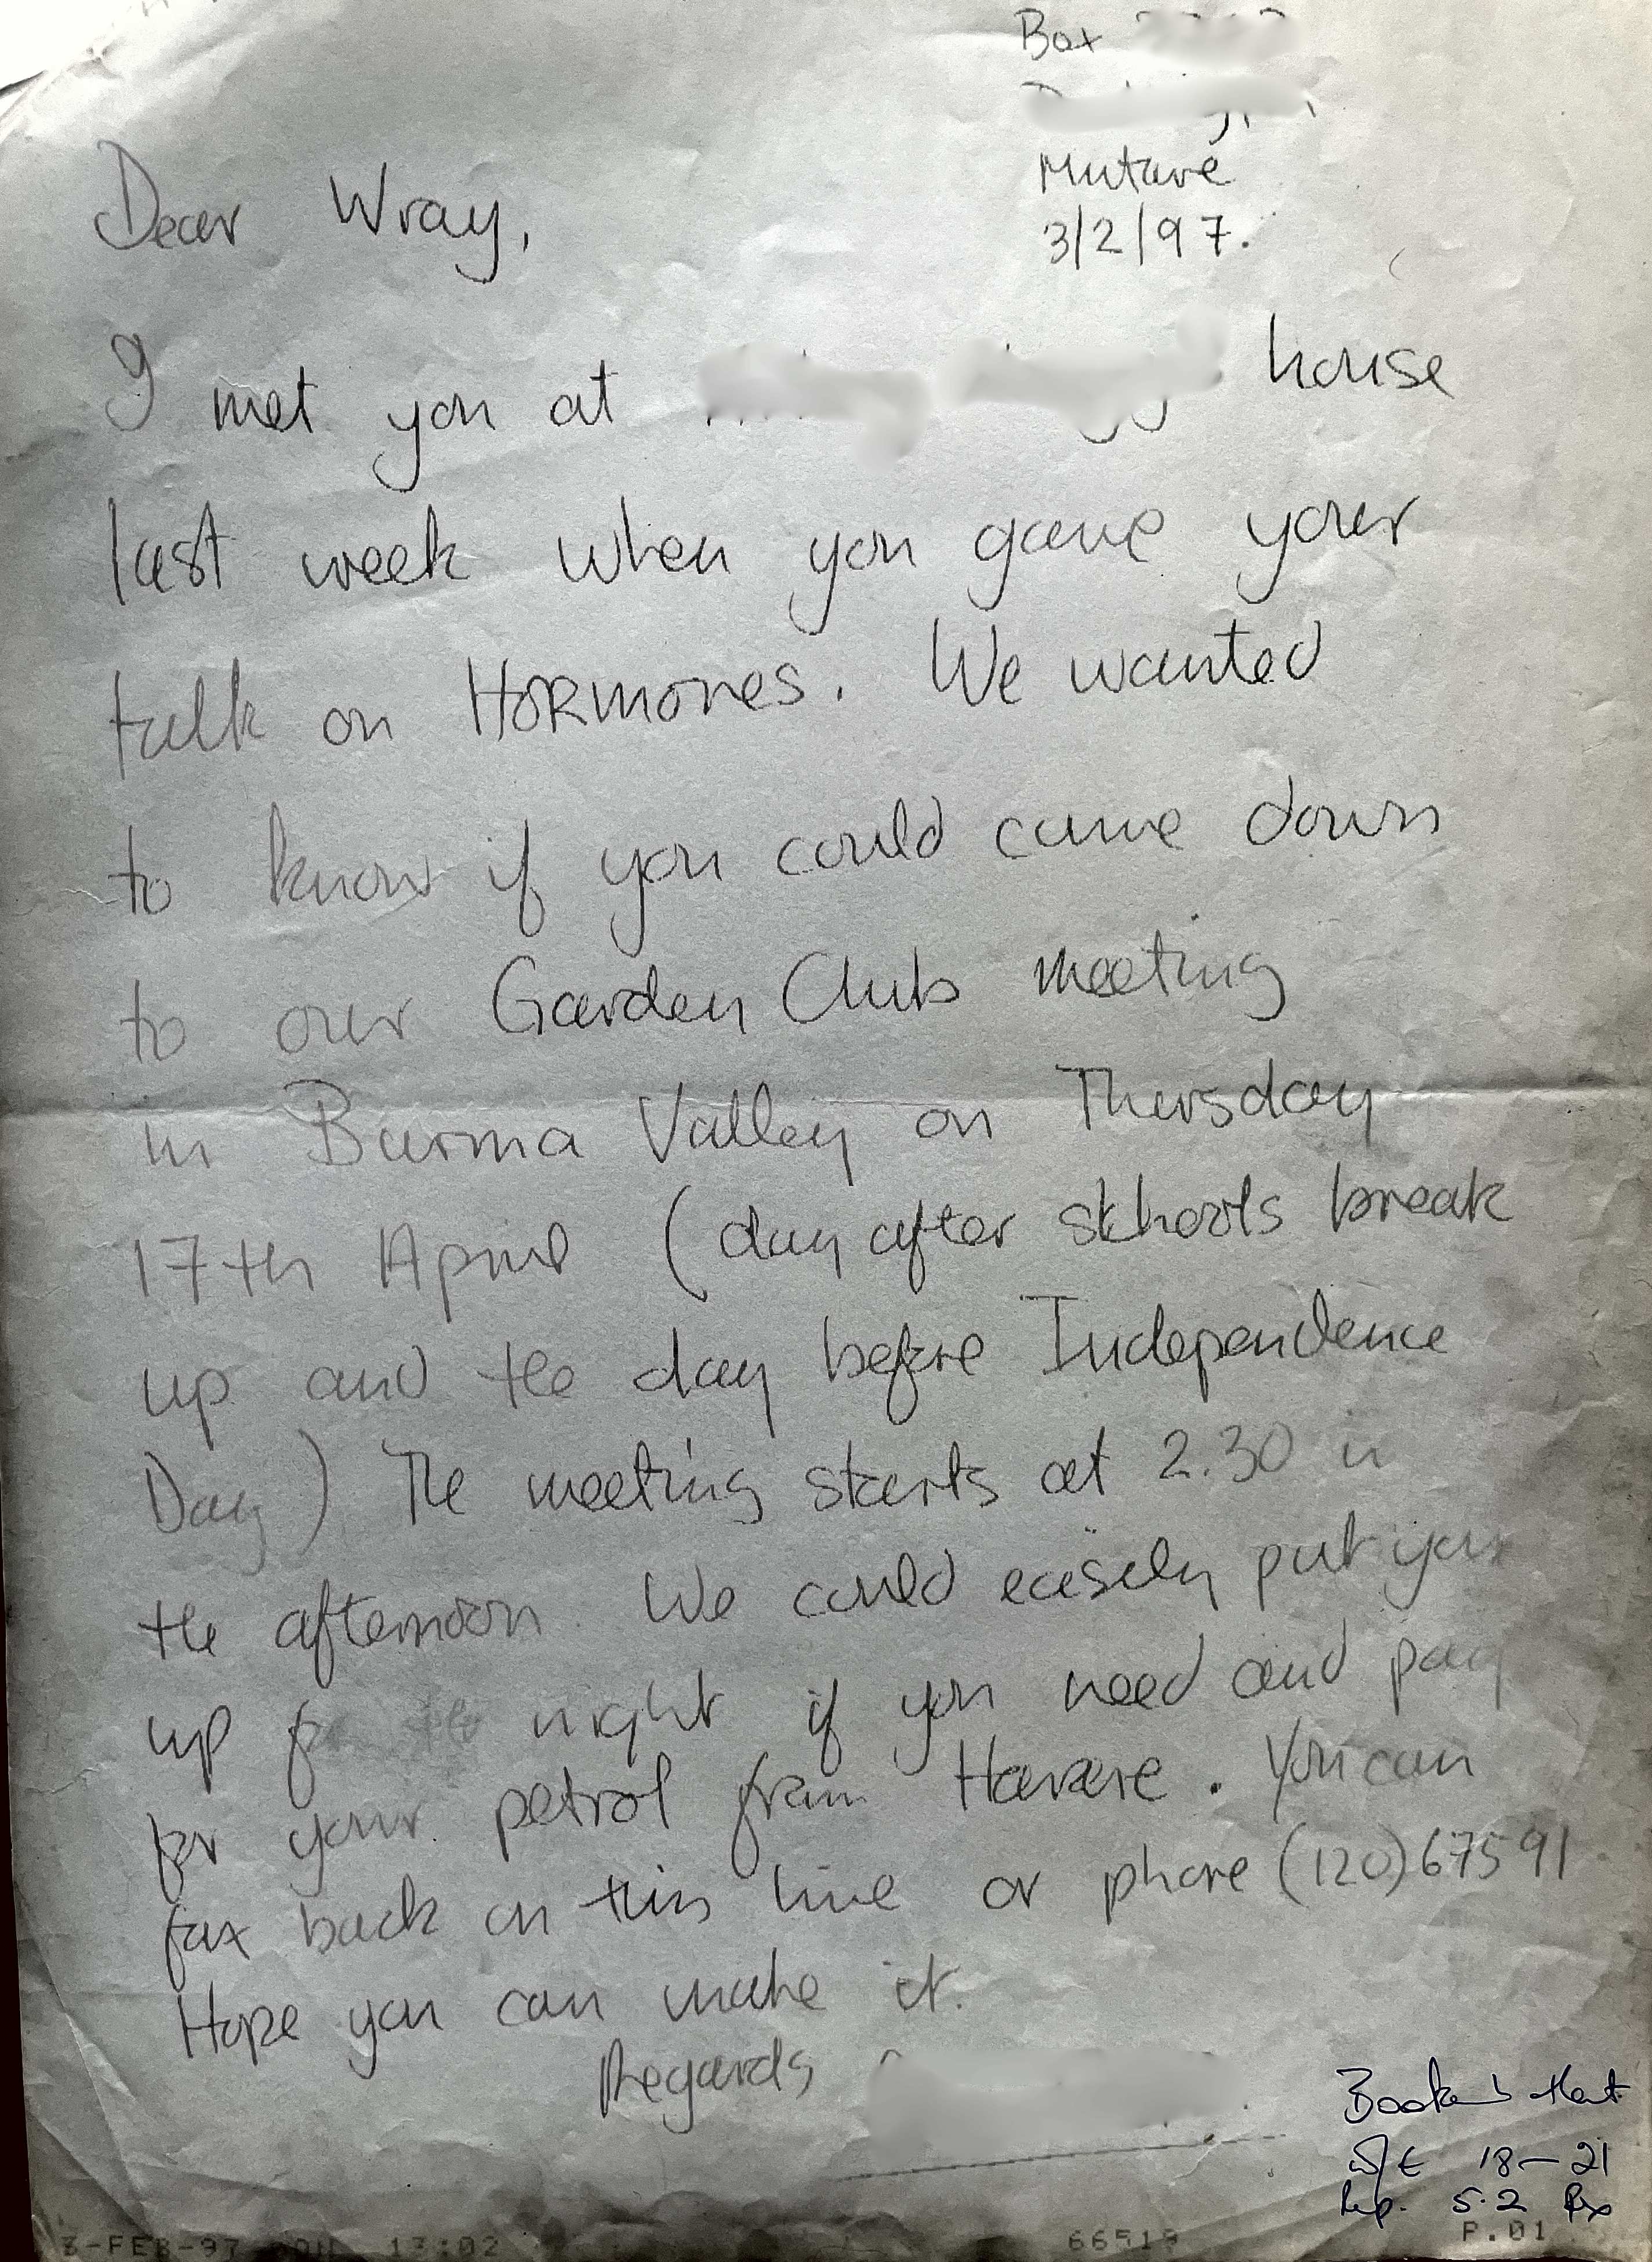 Box
Mutare
3/2/97.
Dear Wray,
I met you at house
last week when you gave your
talk on HORMONES. We wanted
to know if you could come down
to our Garden Club meeting
in Burma Valley on Thursday
17th April (day after schools break
up and the day before Independence
Day) The meeting starts at 2.30 in
the afternoon. We could easily put you
up for the night if you need and pay
for your petrol from Harare. You can
fax back on this line or phone (120)67591
Hope you can make it.
Regards
W/E 18-21
Rep. 5.2
3-FEB-97 13:02 66519 P.01